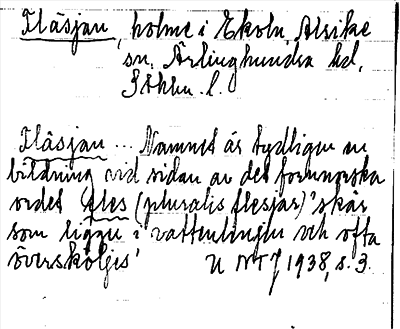 Fläsjan, holme i Ekoln, Alsike
sn, Ärlinghundra hd,
Sthlm. l.
Fläsjan ... Namnet är tydligen en
bildning vid sidan av det fornnorska
ordet fles (pluralis flesjar) 'skär
som ligger i vattenlinjen och ofta
översköljes' U NT 1938, s. 3.